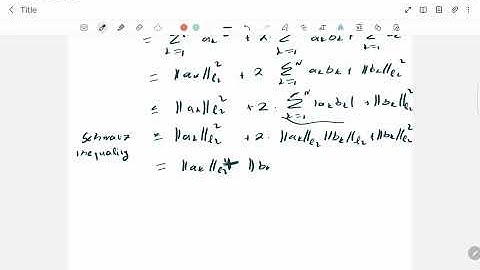 Title
= Σ_{k=1} a_k + 2 · Σ_{k=1} a_k b_k + Σ_{k=1}
= ||a_k||_{ℓ_2}^2 + 2 Σ_{k=1}^N a_k b_k + ||b_k||_{ℓ_2}^2
≤ ||a_k||_{ℓ_2}^2 + 2 · Σ_{k=1}^N |a_k b_k| + ||b_k||_{ℓ_2}^2
Schwarz inequality ≤ ||a_k||_{ℓ_2}^2 + 2 · ||a_k||_{ℓ_2} ||b_k||_{ℓ_2} + ||b_k||_{ℓ_2}^2
= ||a_k||_{ℓ_2} + ||b_k